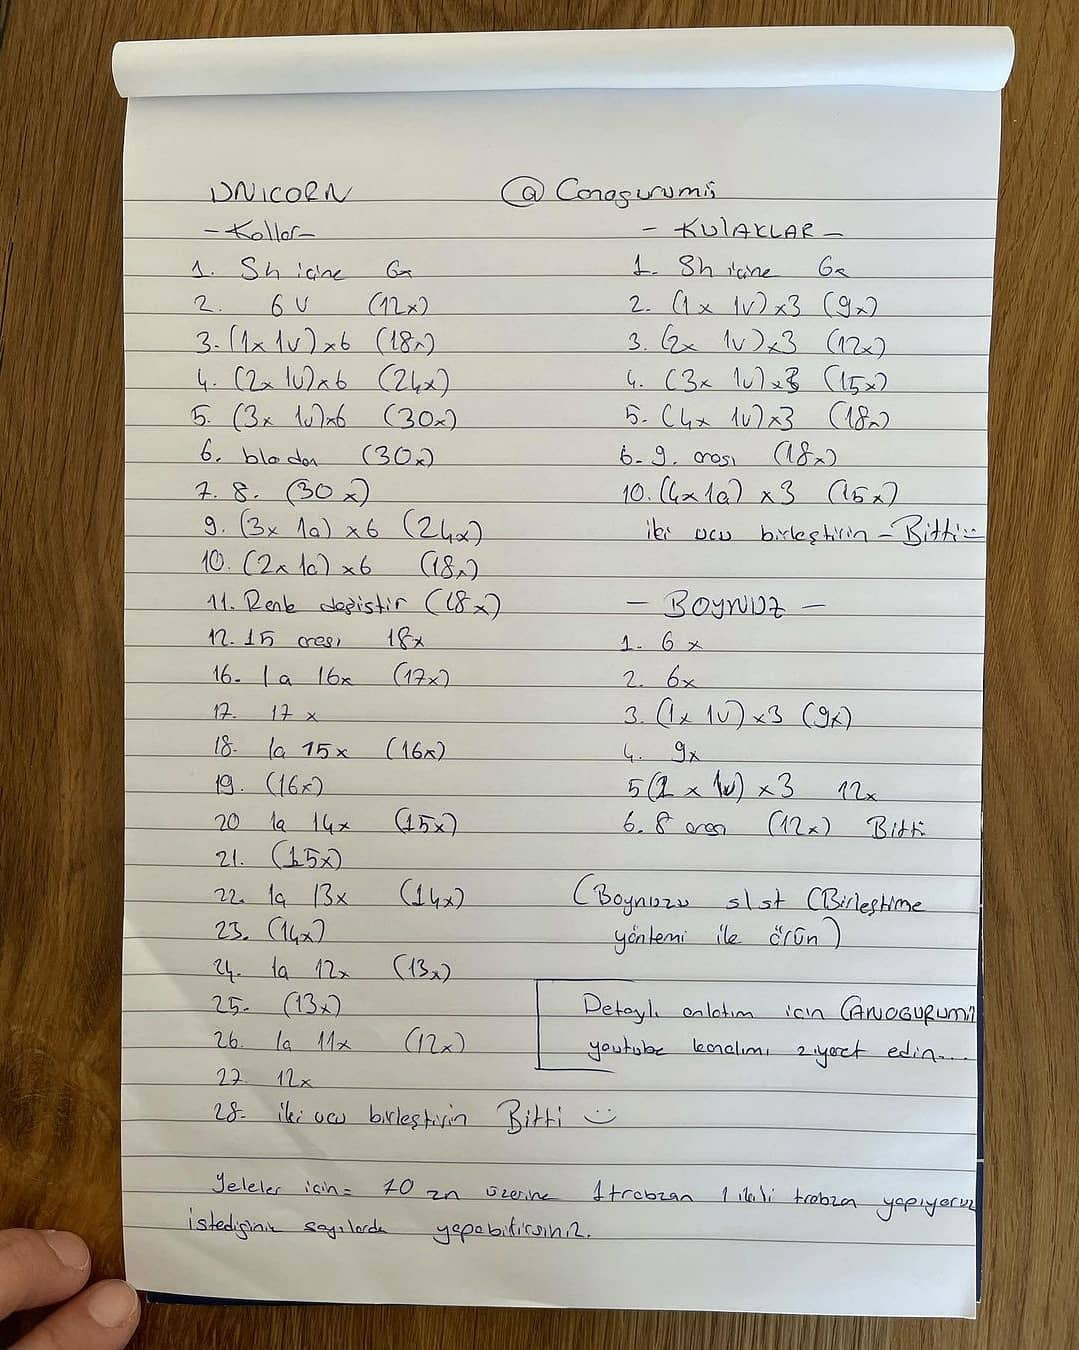 UNICORN
@Canogurumi
-Kollar-
1. Sh içine 6x
2. 6 V (12x)
3. (1x 1v)x6 (18x)
4. (2x 1v)x6 (24x)
5. (3x 1v)x6 (30x)
6. blo dan (30x)
7. 8. (30x)
9. (3x 1a) x6 (24x)
10. (2x 1a) x6 (18x)
11. Renk değiştir (18x)
12. 15 arası 18x
16. 1a 16x (17x)
17. 17 x
18. 1a 15x (16x)
19. (16x)
20 1a 14x (15x)
21. (15x)
22. 1a 13x (14x)
23. (14x)
24. 1a 12x (13x)
25. (13x)
26. 1a 11x (12x)
27. 12x
28. iki ucu birleştirin Bitti :)
- KULAKLAR -
1. Sh içine 6x
2. (1x 1v)x3 (9x)
3. (2x 1v)x3 (12x)
4. (3x 1v)x3 (15x)
5. (4x 1v)x3 (18x)
6-9. arası (18x)
10. (4x1a) x3 (15x)
iki ucu birleştirin - Bitti :)
- BOYNUZ -
1. 6 x
2. 6x
3. (1x 1v)x3 (9x)
4. 9x
5 (2 x 1v) x3 12x
6. 8 arası (12x) Bitti
(Boynuzu slst (Birleştirme
yöntemi ile örün)
Detaylı anlatım için CANOGURUMİ
youtube kanalımı ziyaret edin...
Yeleler için= 10 zn üzerine 1 trabzan 1 ikili trabzan yapıyoruz
istediğiniz sayılarda yapabilirsiniz.